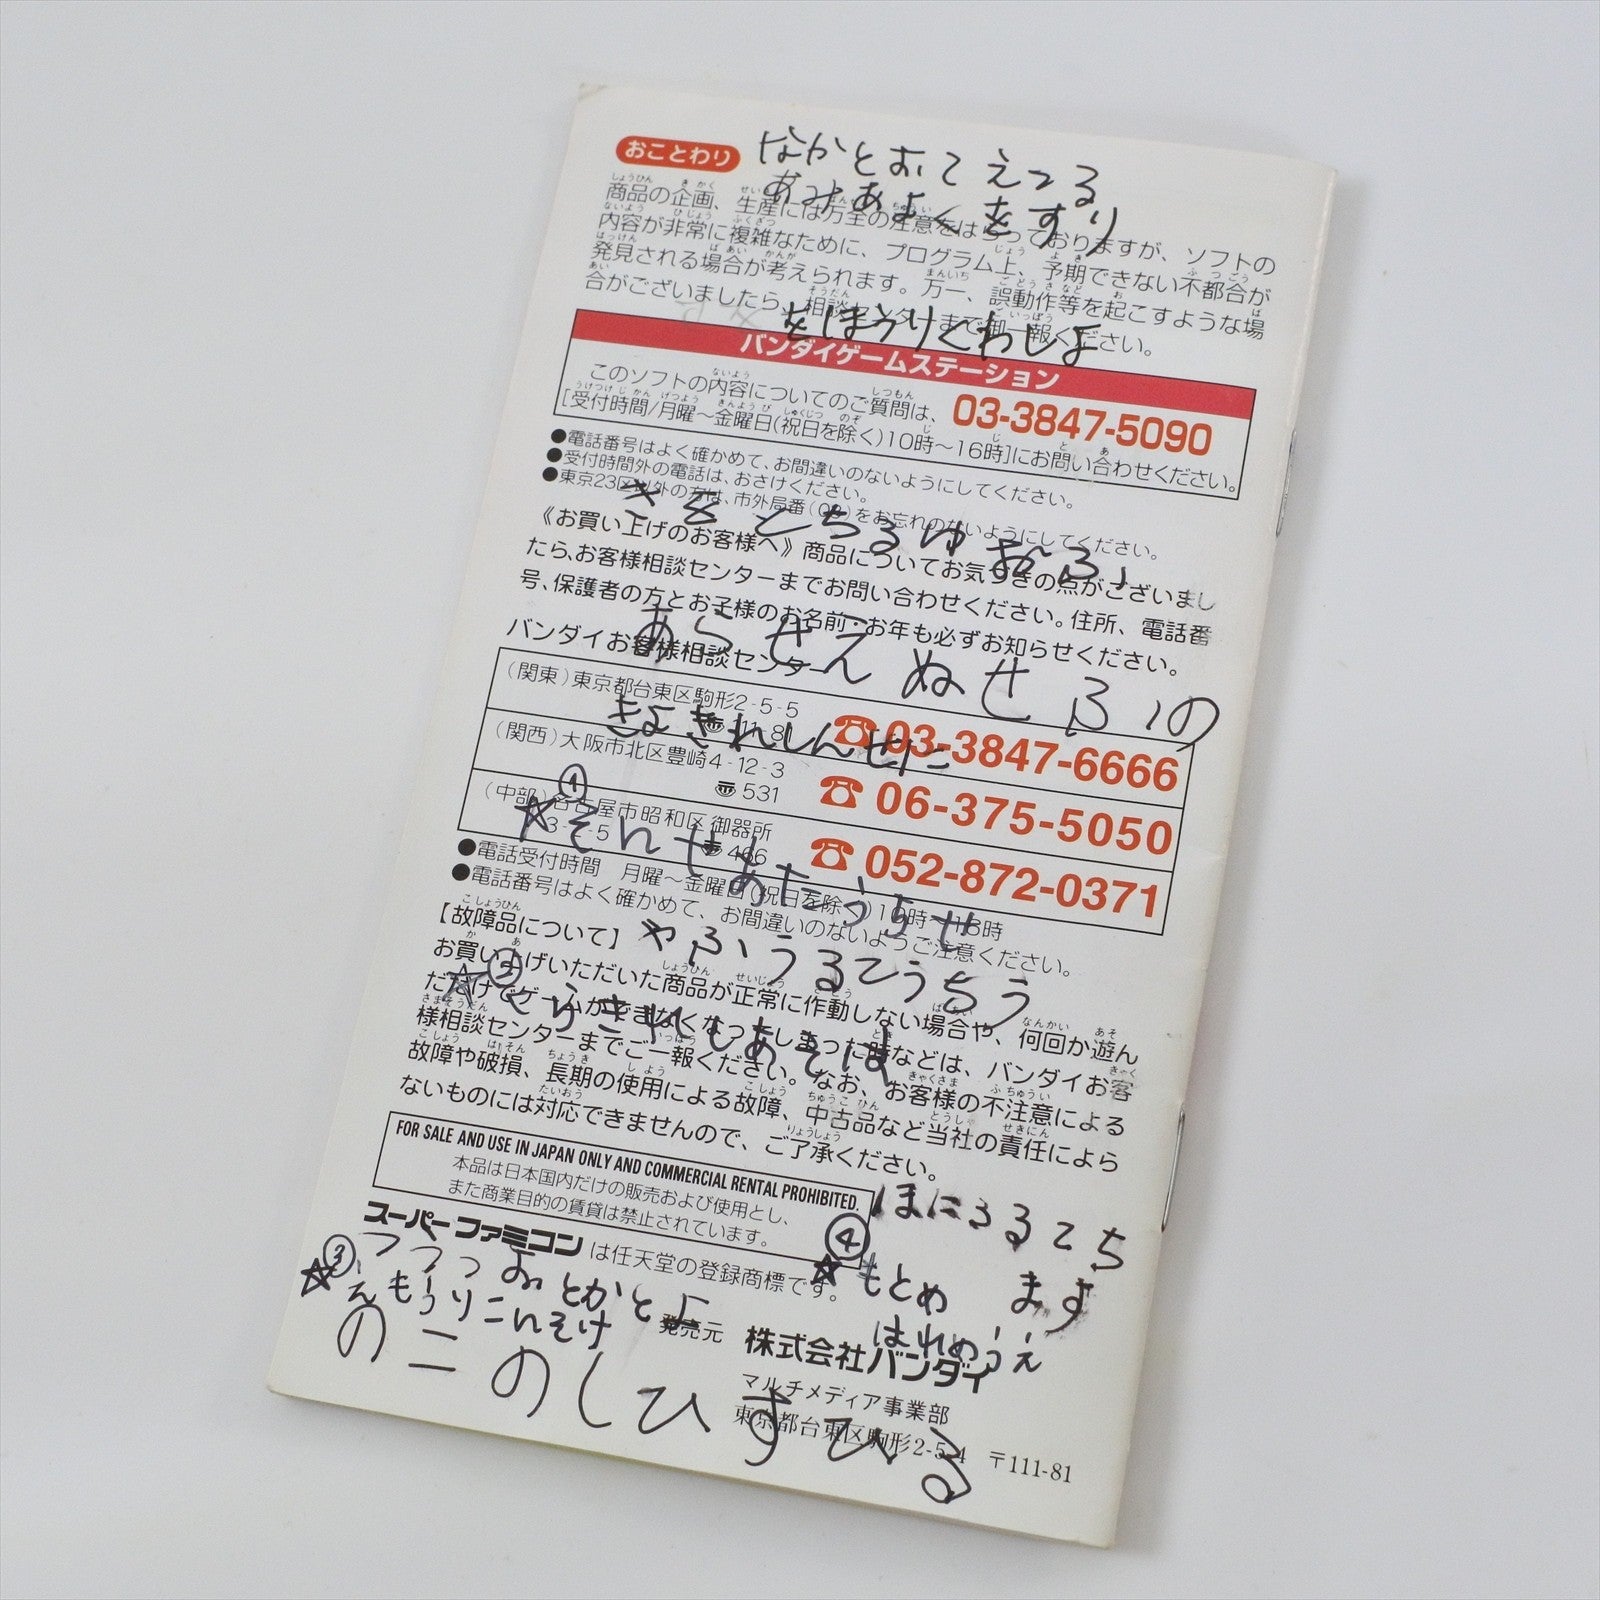 おことわり
なかとおてえてる
あみあよくをすり
商品の企画、生産には万全の注意をはらっておりますが、ソフトの
内容が非常に複雑なために、プログラム上、予期できない不都合が
発見される場合が考えられます。万一、誤動作等を起こすような場
合がございましたら、相談センターまで御一報ください。
をほうりくわしよ
バンダイゲームステーション
このソフトの内容についてのご質問は、03-3847-5090
[受付時間/月曜〜金曜日(祝日を除く)10時〜16時]にお問い合わせください。
●電話番号はよく確かめて、お間違いのないようにしてください。
●受付時間外の電話は、おさけください。
●東京23区以外の方は、市外局番(03)をお忘れのないようにしてください。
《お買い上げのお客様へ》商品についてお気づきの点がございまし
たら、お客様相談センターまでお問い合わせください。住所、電話番
号、保護者の方とお子様のお名前・お年も必ずお知らせください。
あらせえぬせふの
バンダイお客様相談センター
(関東)東京都台東区駒形2-5-5
☎03-3847-6666
きよきれしんせに
(関西)大阪市北区豊崎4-12-3
〠531 ☎06-375-5050
(中部)名古屋市昭和区御器所
〠466 ☎052-872-0371
① ☆そんせあたうらせ
●電話受付時間 月曜〜金曜日(祝日を除く)10時〜16時
●電話番号はよく確かめて、お間違いのないようご注意ください。
【故障品について】
やふうるてうちう
お買い上げいただいた商品が正常に作動しない場合や、何回か遊ん
だだけでゲームができなくなってしまった時などは、バンダイお客
様相談センターまでご一報ください。なお、お客様の不注意による
故障や破損、長期の使用による故障、中古品など当社の責任によら
ないものには対応できませんので、ご了承ください。
FOR SALE AND USE IN JAPAN ONLY AND COMMERCIAL RENTAL PROHIBITED.
本品は日本国内だけの販売および使用とし、
また商業目的の賃貸は禁止されています。
ほにうるてち
スーパーファミコンは任天堂の登録商標です。
④ ☆もとめ ます
はれめうえ
③ ☆えもうりこんそけ
発売元 株式会社バンダイ
マルチメディア事業部
東京都台東区駒形2-5-4 〒111-81
のこのしひすひる